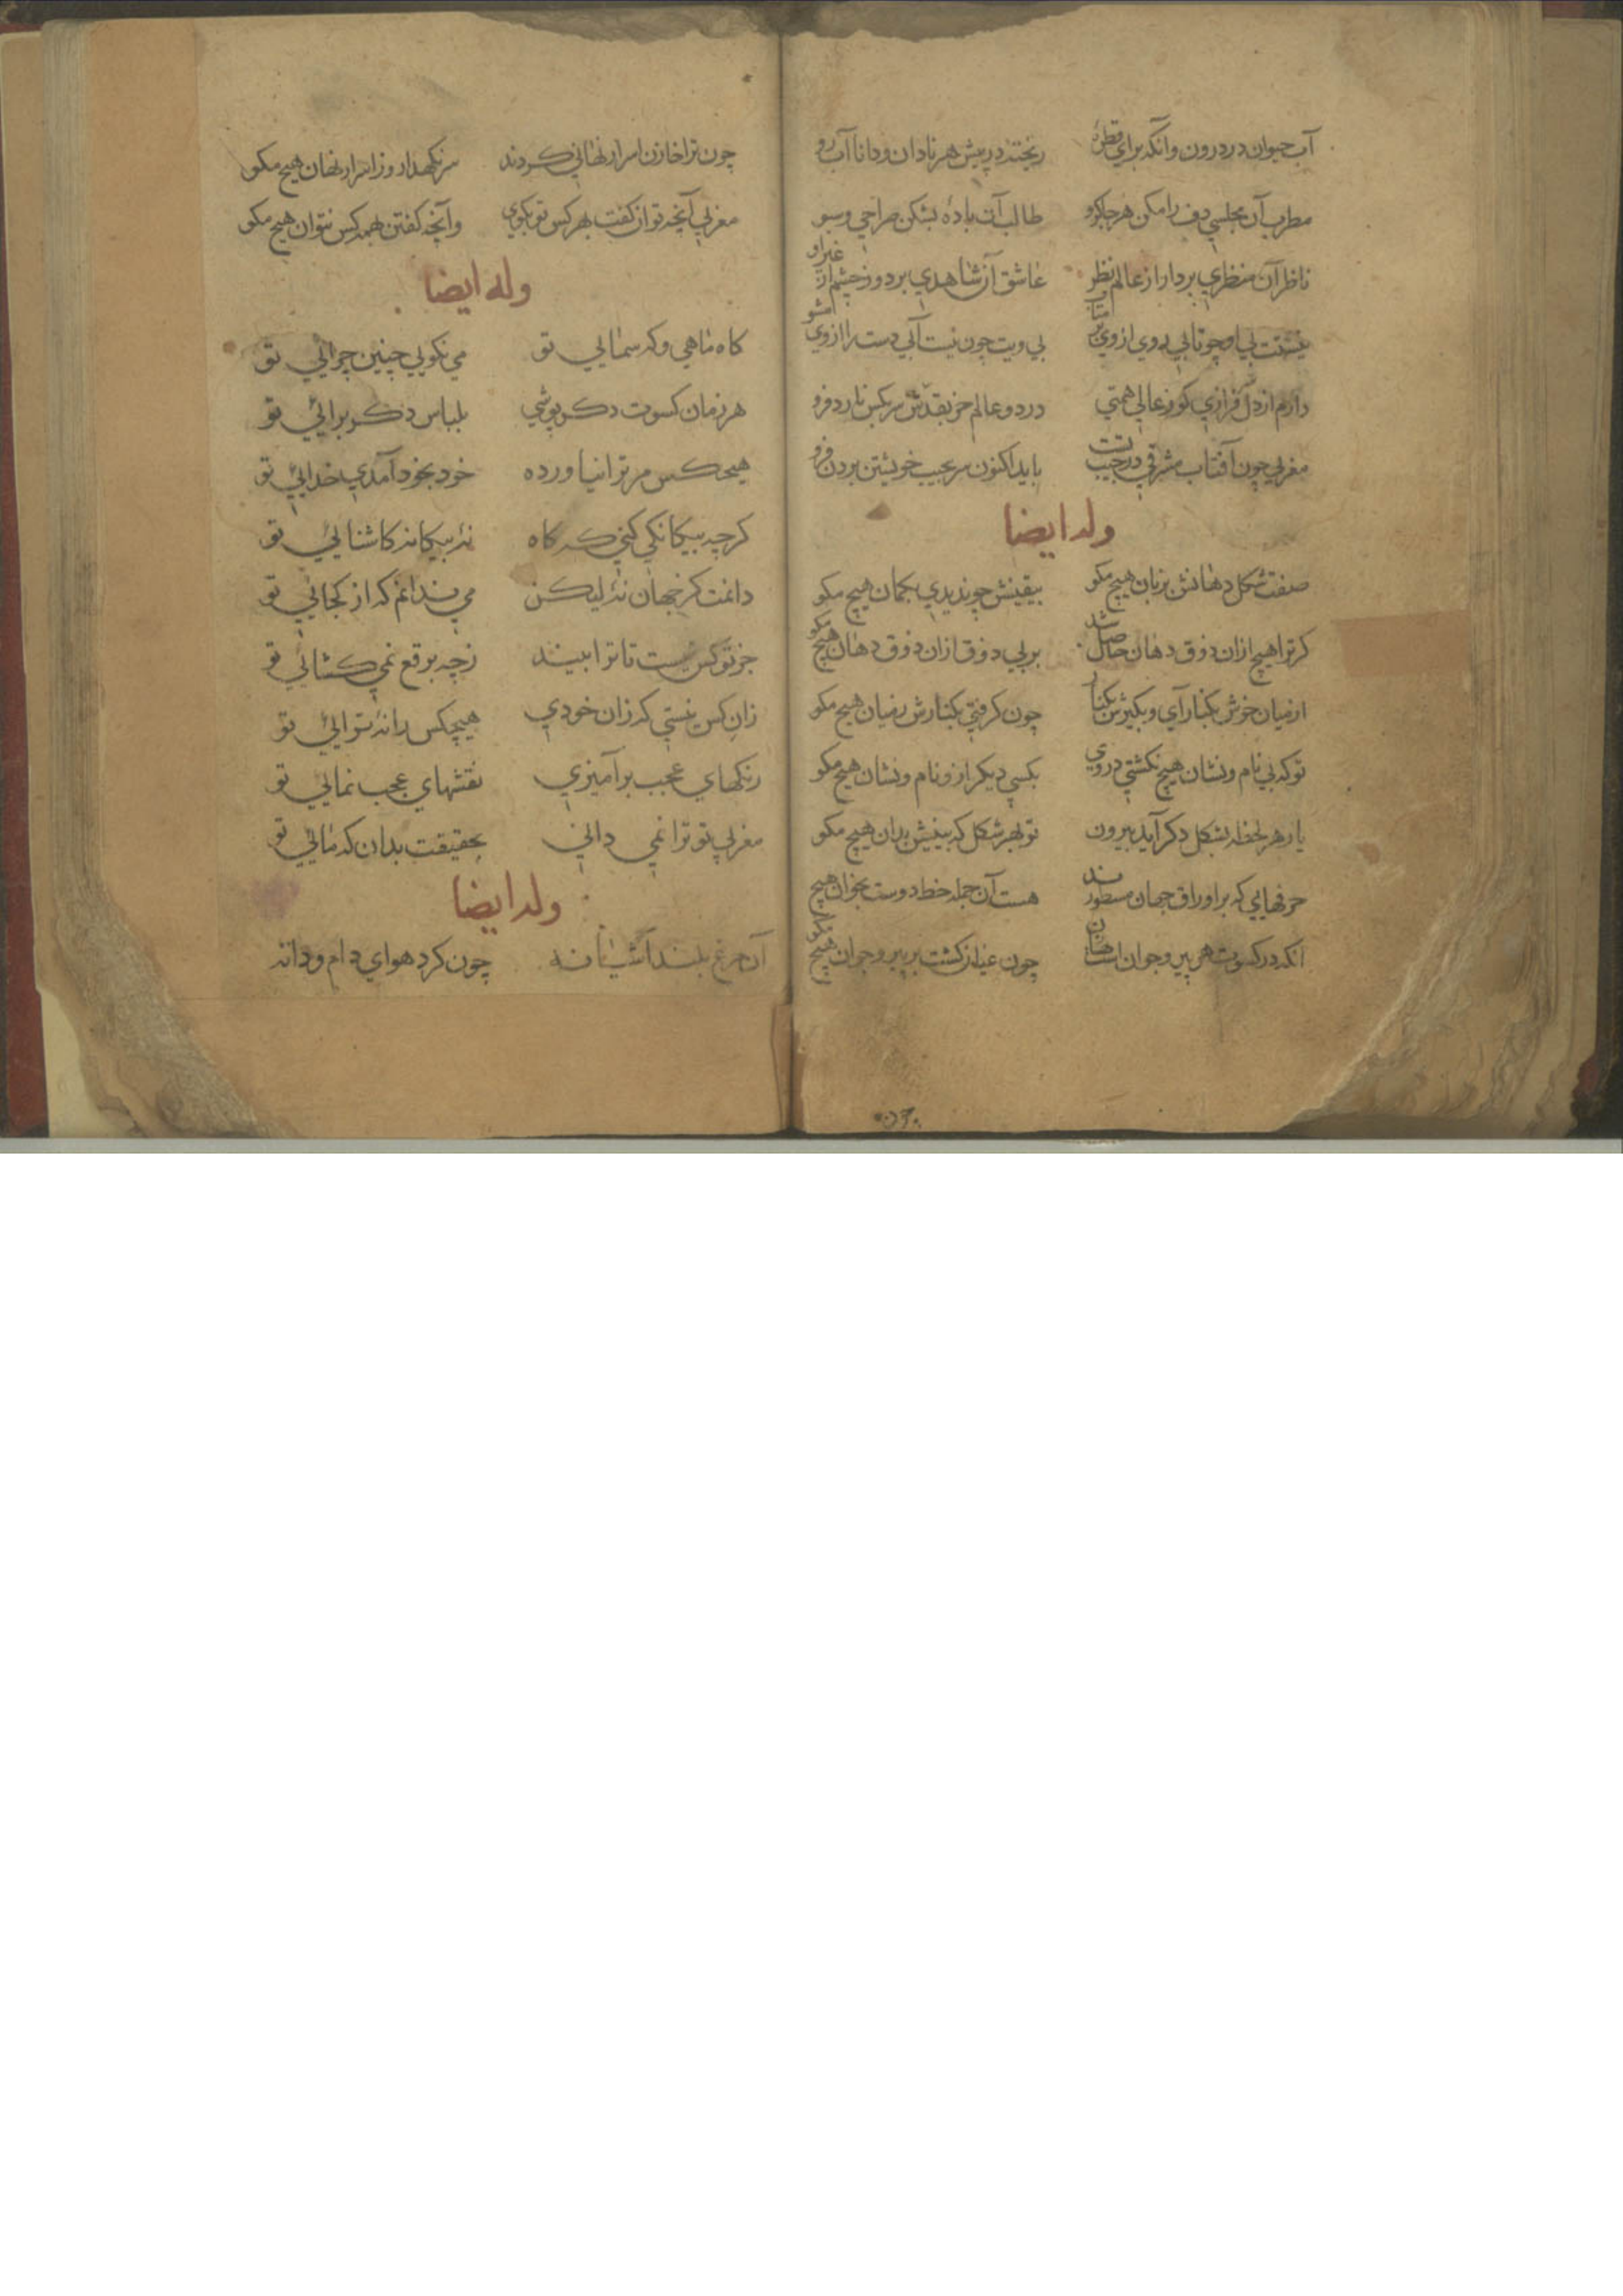 آب حیوان در درون وانکه برای قطرهٔ ریختند در پیش هر نادان و دانا آب رو
مطرب آن مجلسی دف را مکن هر جا کرو طالب آن بادهٔ بشکن صراحی و سبو
ناظر آن منظری بردار از عالم نظر عاشق آن شاهدی بردوز چشم از غیر او
نیستت بی او چو تابی روی ازو بر متاب بی ویت چون نیست آبی دست را از وی مشو
دارم از دل فرازی کو ز عالی همتی در دو عالم جز بقدش سر بکس نارد فرو
مغربی چون آفتاب مشرقی در جیب تست باید اکنون سر بجیب خویشتن بردن فرو
وله ایضا
صفت شکل دهانش بزبان هیچ مکو بیقینش چو ندیدی بکمان هیچ مکو
کر ترا هیچ ازان ذوق دهان حاصل شد بر بی ذوق ازان ذوق دهان هیچ مکو
از میان خوش بکنار آی و بکیرش بکنار چون کرفتی بکنارش ز میان هیچ مکو
تو که بی نام و نشان هیچ نکشتی در وی بکسی دیکر ازو نام و نشان هیچ مکو
یار هر لحظه بشکل دکر آید بیرون تو بهر شکل که بینیش بدان هیچ مکو
حرفهایی که بر اوراق جهان مسطورند هست آن جمله خط دوست بخوان هیچ مکو
انکه در کسوت هر پیر و جوان است نهان چون عیان کشت بر پیر و جوان هیچ مکو
چون ترا خازن اسرار نهانی کردند سر نکهدار و ز اسرار نهان هیچ مکو
مغربی آنچه توان کفت بهر کس تو بکوی وآنچه کفتن بهمه کس نتوان هیچ مکو
وله ایضا
کاه ماهی و که سمایی تو می نکویی چنین چرایی تو
هر زمان کسوت دکر پوشی بلباس دکر برائی تو
هیچکس مر ترا نیاورده خود بخود آمدی خدایی تو
کرچه بیکانکی کنی که کاه نهٔ بیکانه کاشنایی تو
دانمت کز جهان نهٔ لیکن می ندانم که از کجایی تو
جز تو کس نیست تا ترا بیند ز چه برقع نمی کشائی تو
زان کس نیستی که زان خودی هیچکس را نهٔ ترایی تو
رنکهای عجب برآمیزی نقشهای عجب نمایی تو
مغربی تو ترا نمی دانی بحقیقت بدان که مایی تو
وله ایضا
آن مرغ بلند آشیانه چون کرد هوای دام و دانه